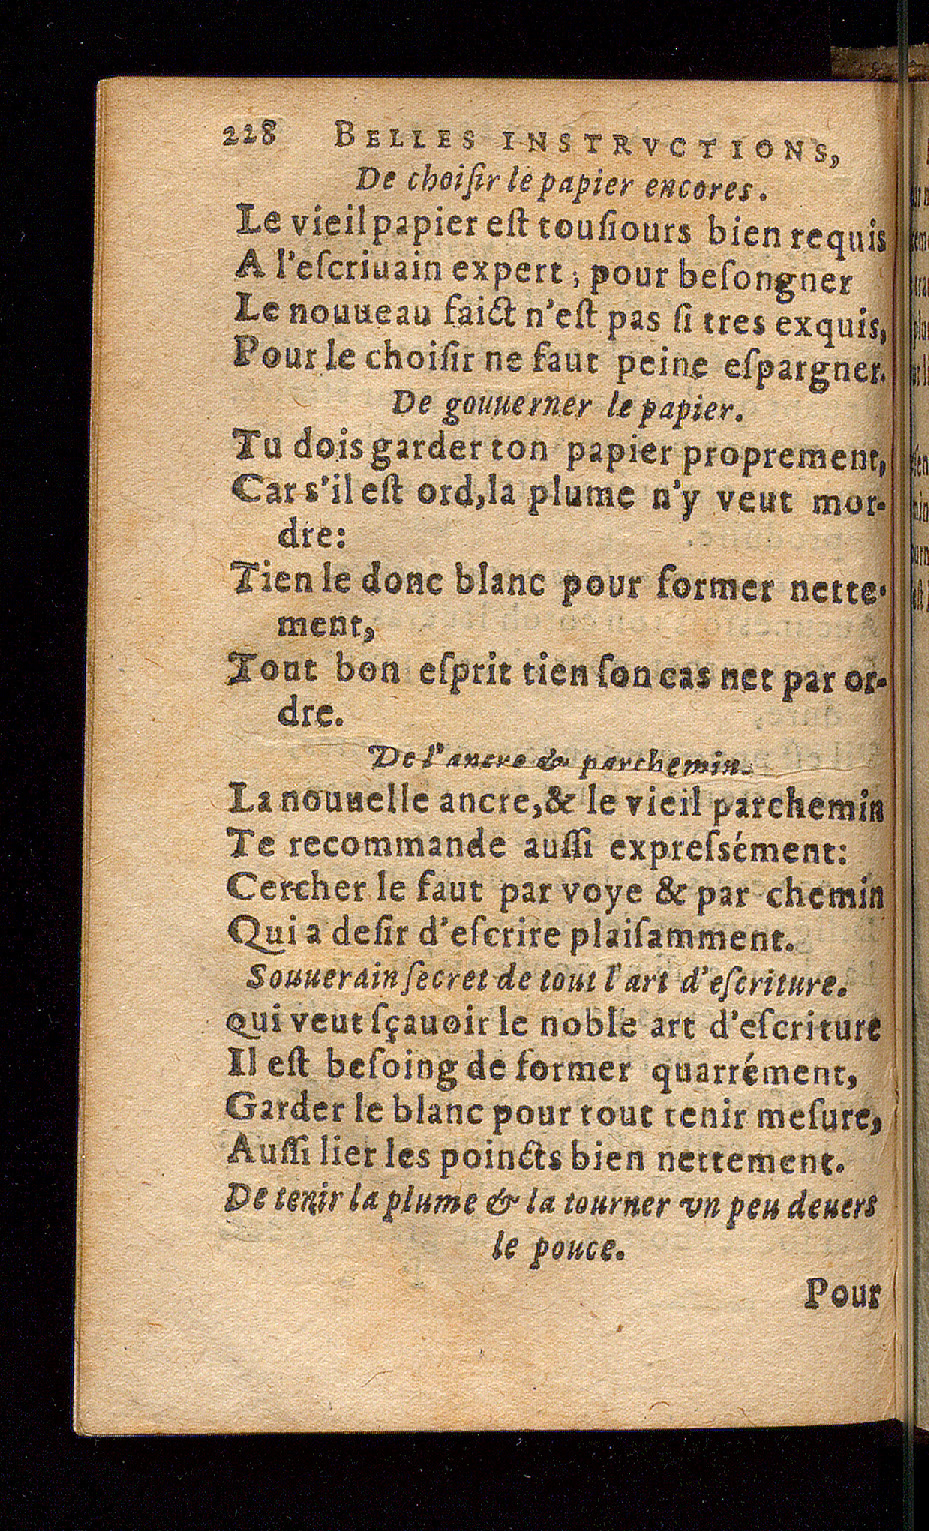 228 BELLES INSTRVCTIONS,
De choiſir le papier encores.
Le vieil papier eſt touſiours bien requis
A l'eſcriuain expert, pour beſongner
Le nouueau faict n'eſt pas ſi tres exquis,
Pour le choiſir ne faut peine eſpargner.
De gouuerner le papier.
Tu dois garder ton papier proprement,
Car s'il eſt ord, la plume n'y veut mor-
dre:
Tien le donc blanc pour former nette-
ment,
Tout bon eſprit tien ſon cas net par or-
dre.
De l'ancre & parchemin.
La nouuelle ancre, & le vieil parchemin
Te recommande auſſi expreſsément:
Cercher le faut par voye & par chemin
Qui a deſir d'eſcrire plaiſamment.
Souuerain ſecret de tout l'art d'eſcriture.
qui veut ſçauoir le noble art d'eſcriture
Il eſt beſoing de former quarrément,
Garder le blanc pour tout tenir meſure,
Auſſi lier les poincts bien nettement.
De tenir la plume & la tourner vn peu deuers
le pouce.
Pour